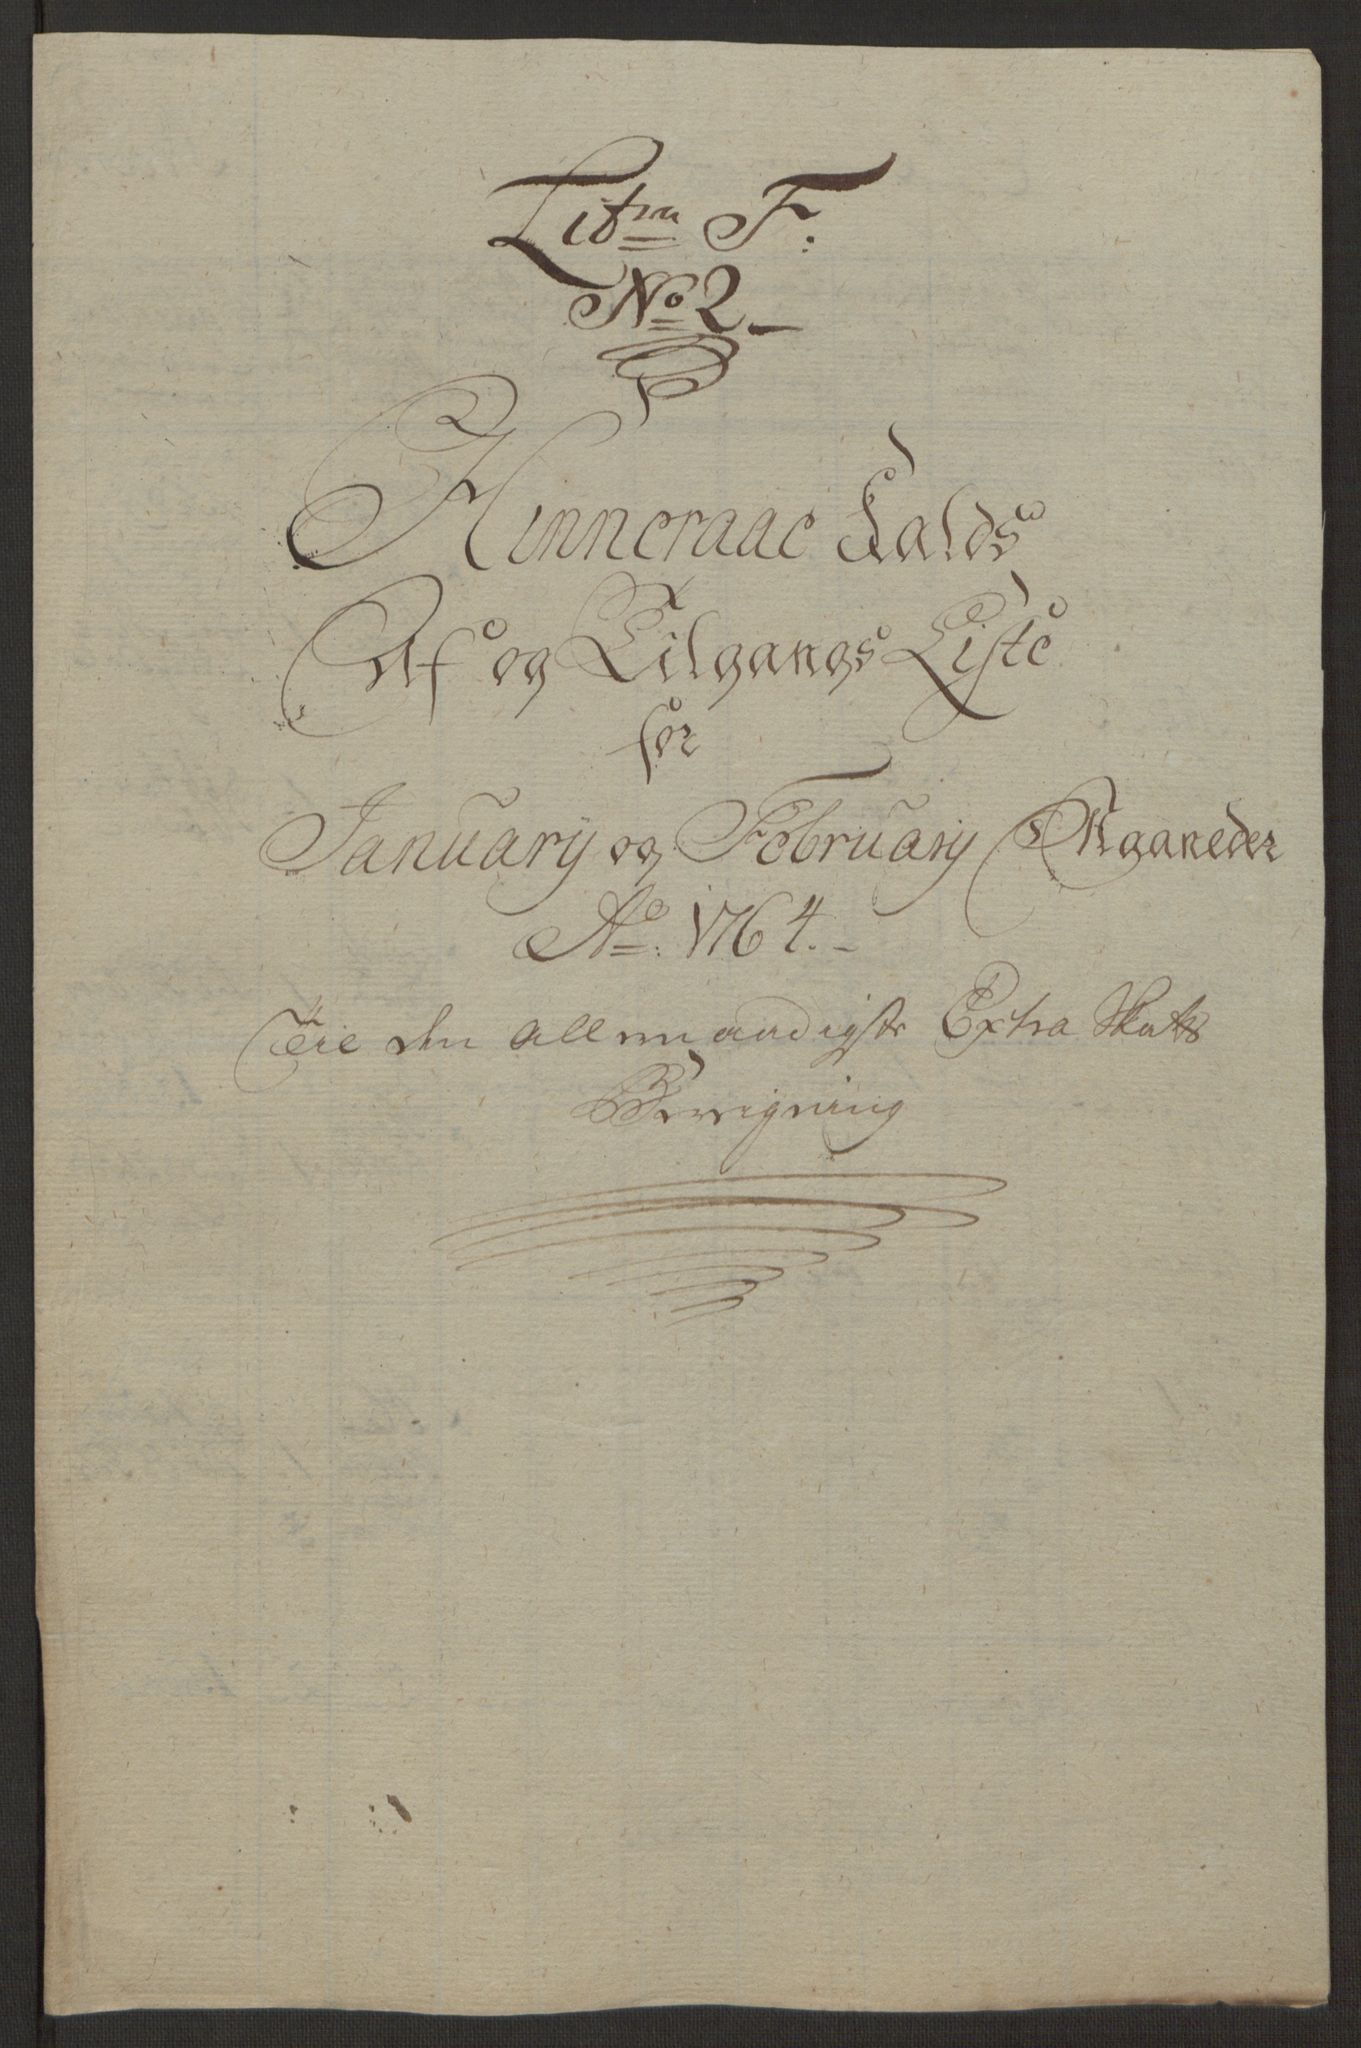 Litra F:
No 2.
Hinneraae Kalds
Af og Tilgangs Liste
for
January og February Maaneder
Ao: 1764.
Til den allernaadigste Extra Skatts
Beregning